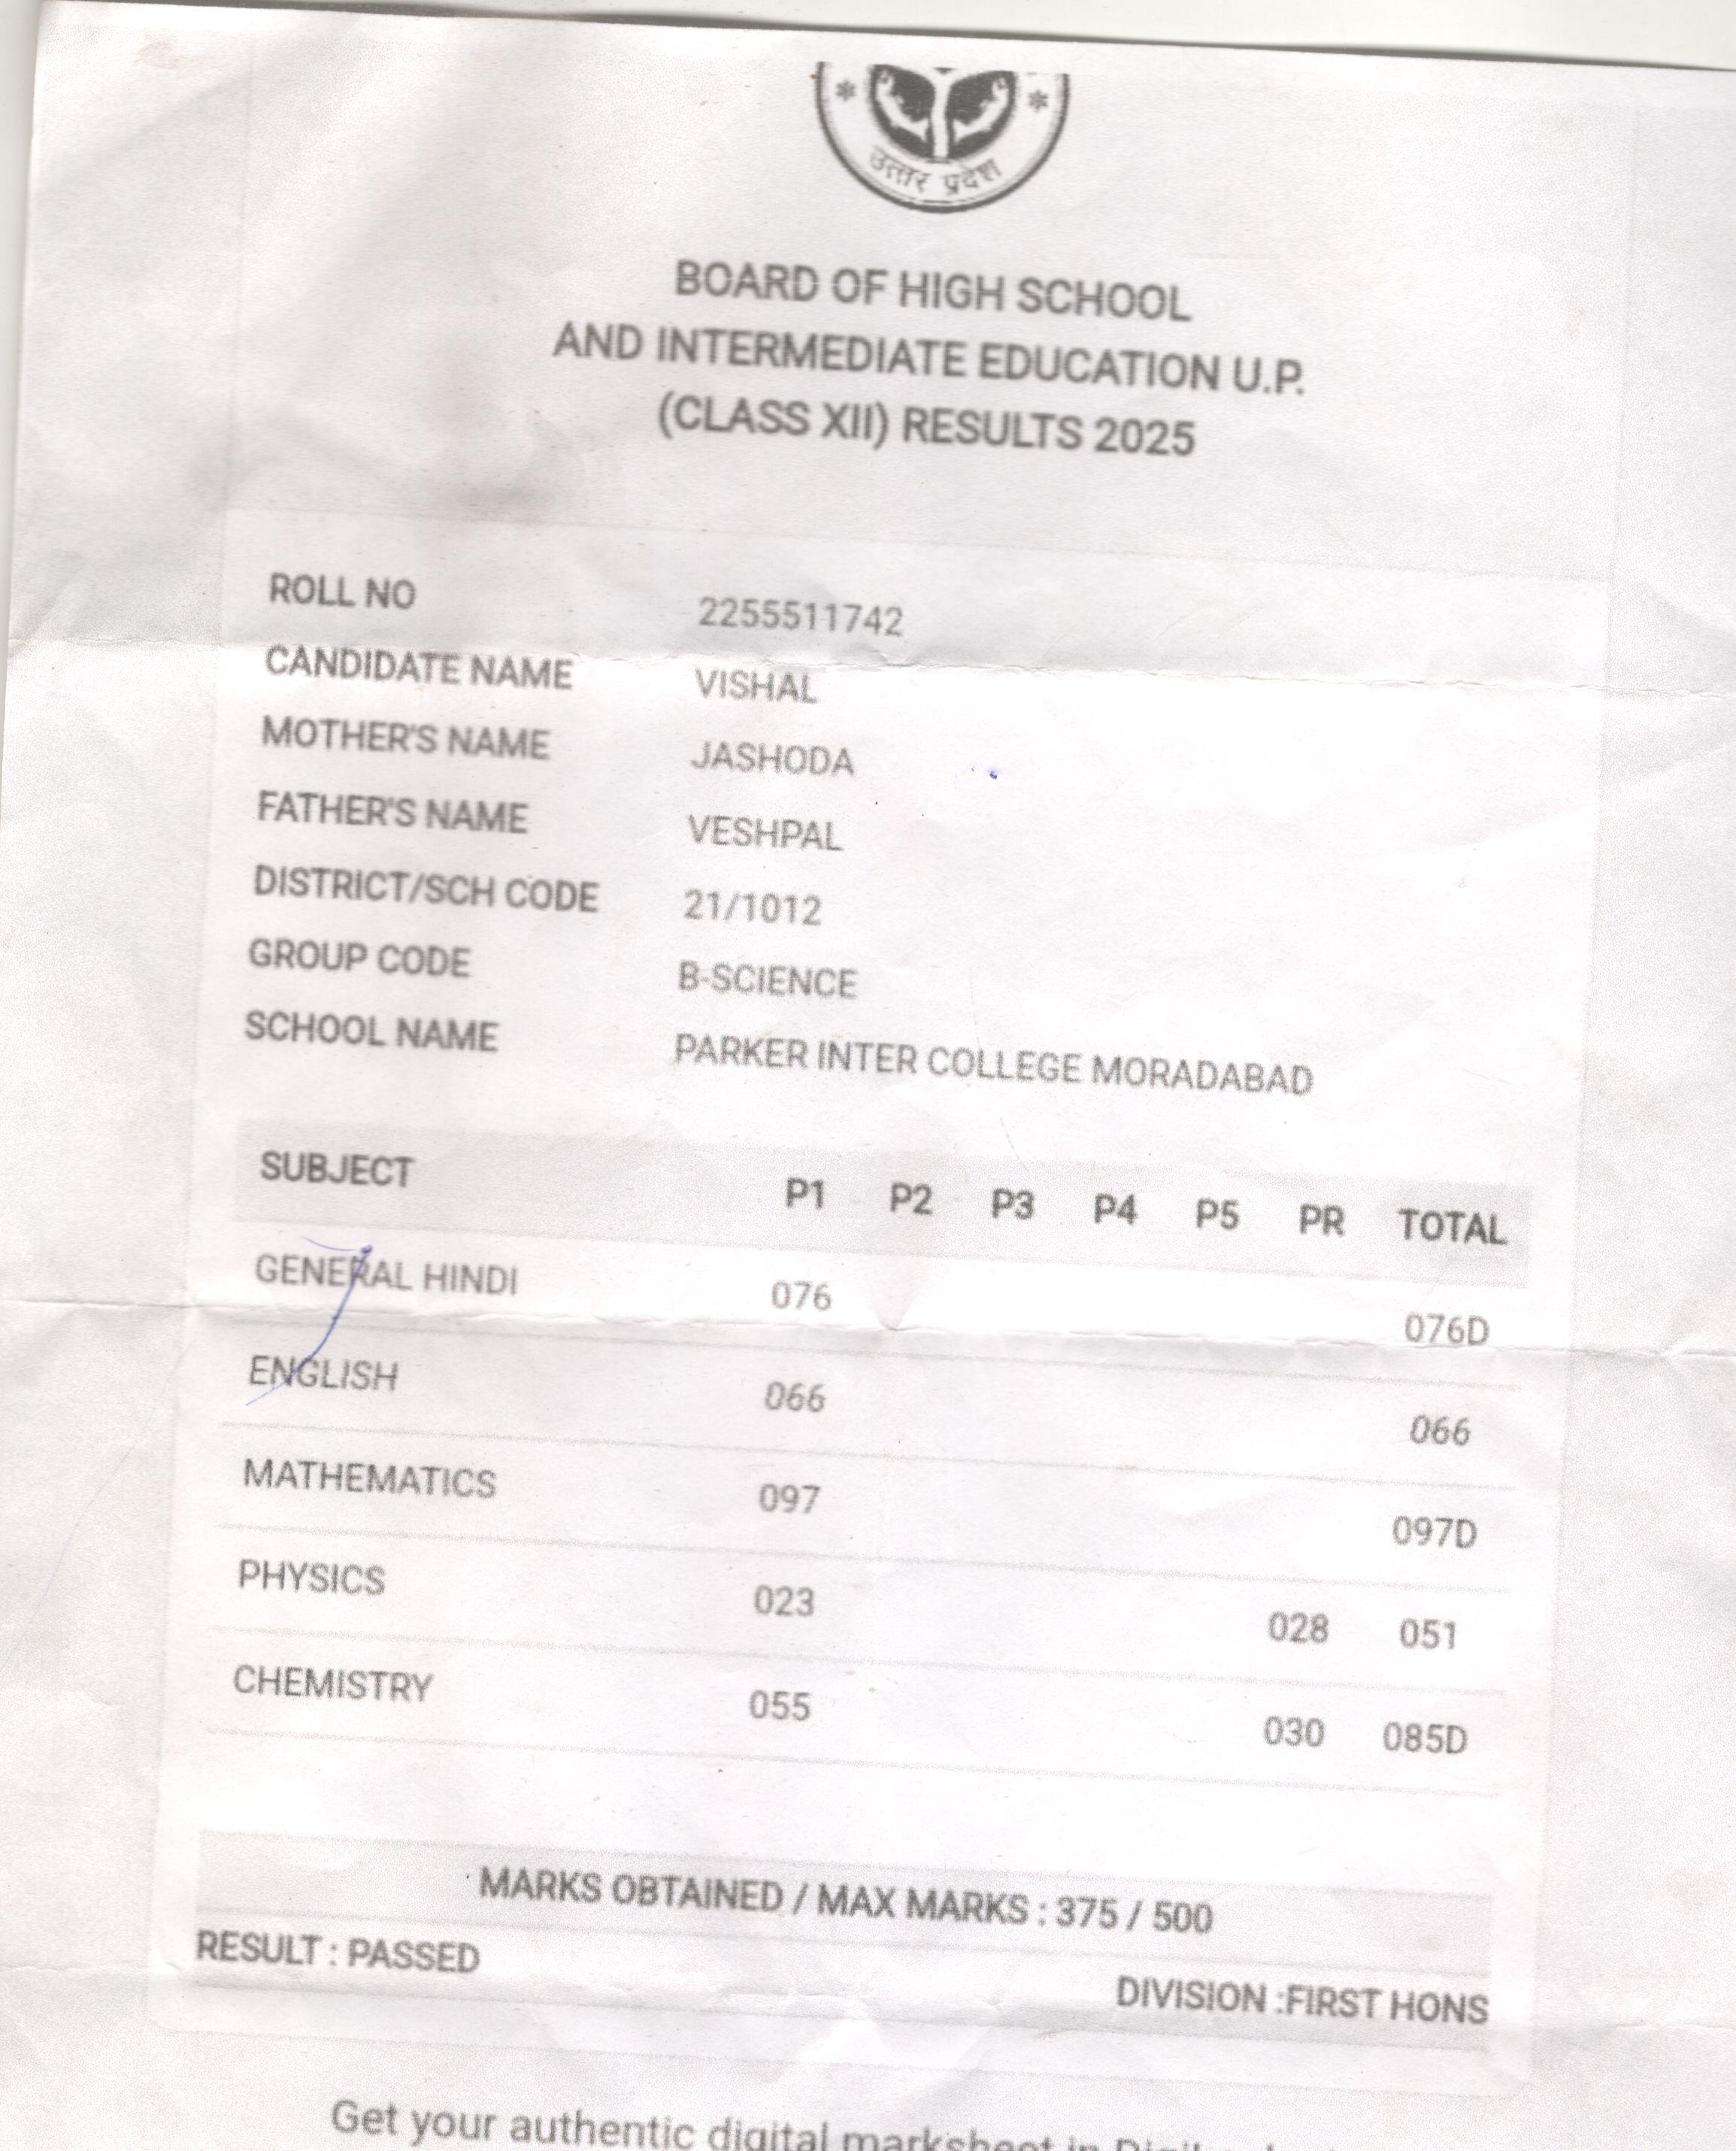 उत्तर प्रदेश
BOARD OF HIGH SCHOOL
AND INTERMEDIATE EDUCATION U.P.
(CLASS XII) RESULTS 2025
ROLL NO 2255511742
CANDIDATE NAME VISHAL
MOTHER'S NAME JASHODA
FATHER'S NAME VESHPAL
DISTRICT/SCH CODE 21/1012
GROUP CODE B-SCIENCE
SCHOOL NAME PARKER INTER COLLEGE MORADABAD
SUBJECT P1 P2 P3 P4 P5 PR TOTAL
GENERAL HINDI 076 076D
ENGLISH 066 066
MATHEMATICS 097 097D
PHYSICS 023 028 051
CHEMISTRY 055 030 085D
MARKS OBTAINED / MAX MARKS : 375 / 500
RESULT : PASSED
DIVISION :FIRST HONS
Get your authentic digital marksheet in